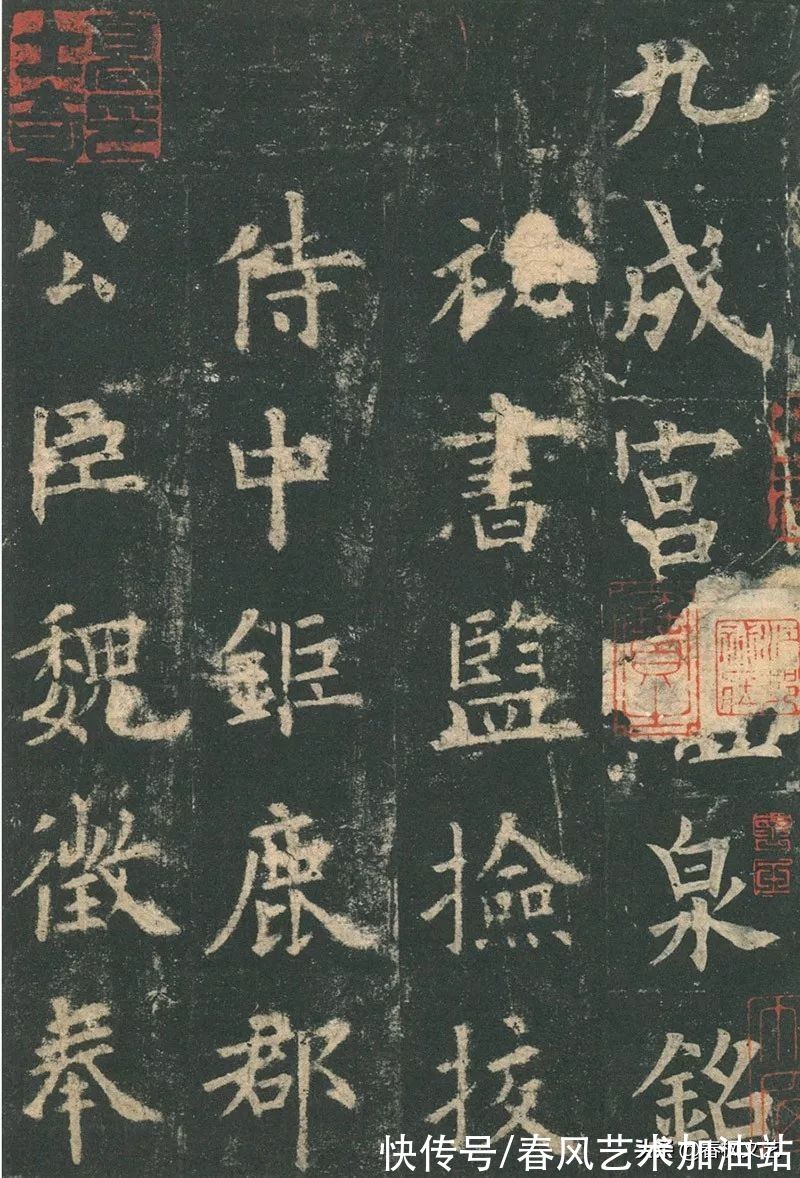 九成宮泉銘
祕書監撿挍
侍中鉅鹿郡
公臣魏徵奉
快传号/春风艺术加油站